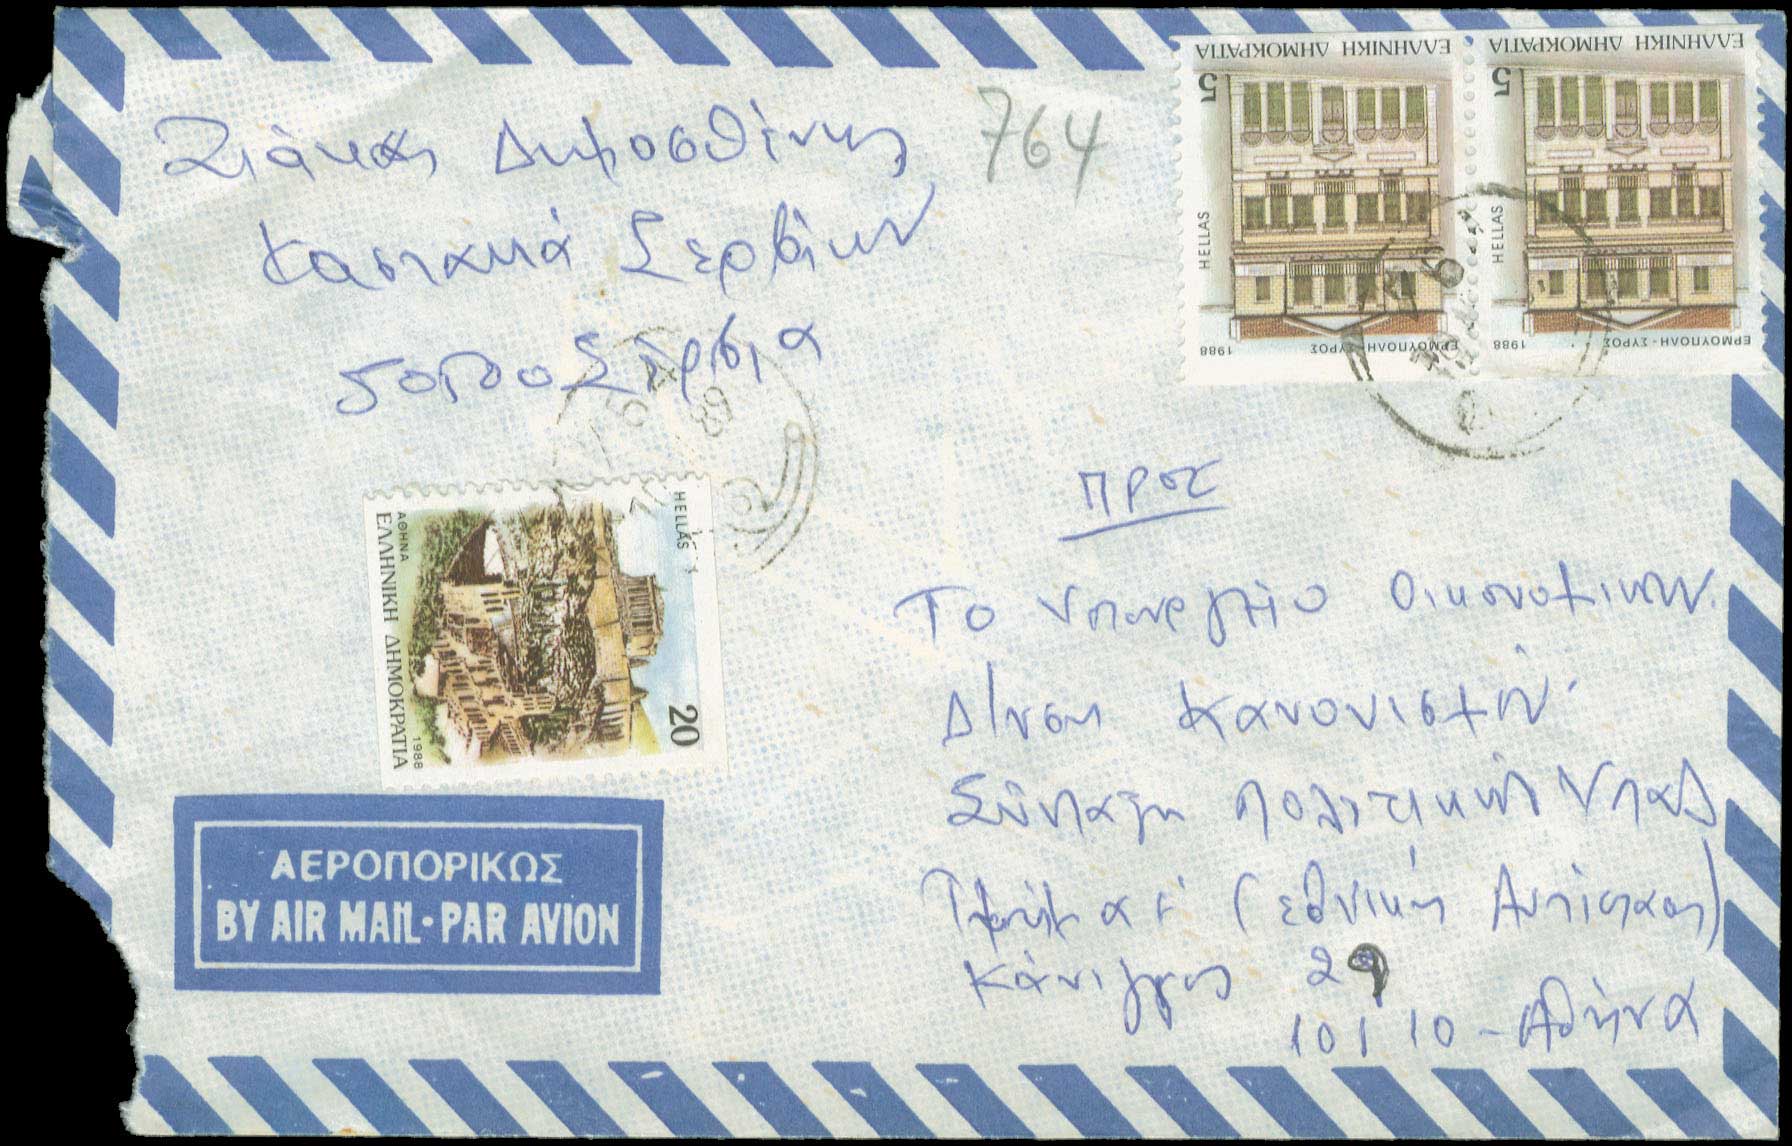 Σιάκας Δημοσθένης
Καστανιά Σερβίων
50500 Σέρβια
764
ΕΛΛΗΝΙΚΗ ΔΗΜΟΚΡΑΤΙΑ
5
HELLAS
ΕΡΜΟΥΠΟΛΗ-ΣΥΡΟΣ
1988
ΕΛΛΗΝΙΚΗ ΔΗΜΟΚΡΑΤΙΑ
5
HELLAS
ΕΡΜΟΥΠΟΛΗ-ΣΥΡΟΣ
1988
HELLAS
20
ΑΘΗΝΑ
1988
ΕΛΛΗΝΙΚΗ ΔΗΜΟΚΡΑΤΙΑ
ΑΕΡΟΠΟΡΙΚΩΣ
BY AIR MAIL·PAR AVION
προς
Το Υπουργείο Οικονομικών.
Δ/νση Κανονισμών
Σύνταξης πολιτικών Υπαλ
Τμήμα (εθνικής Αντίστασης)
Κάνιγγος 29
10110-Αθήνα